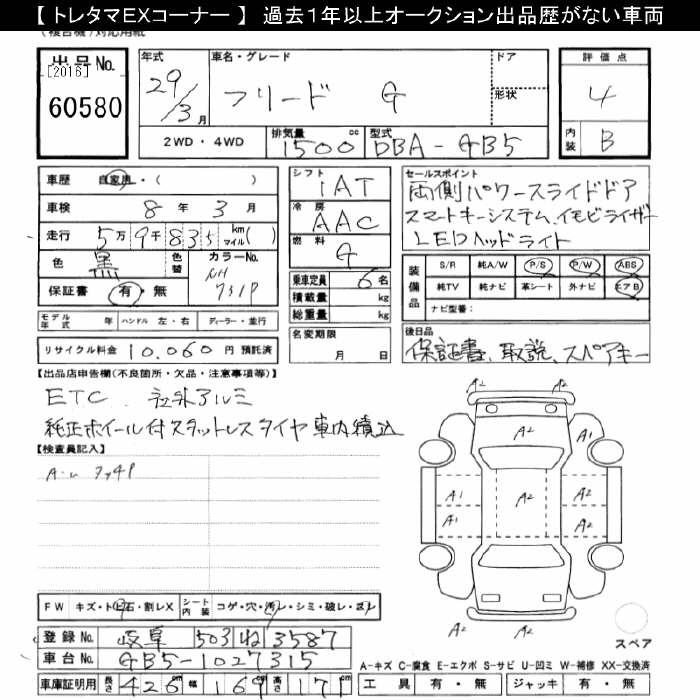 【 トレタマEXコーナー 】 過去1年以上オークション出品歴がない車両
出品No. [2016] 60580
年式 29/3月
車名・グレード フリード G
ドア
形状
2WD・4WD
排気量 1500cc
型式 DBA-GB5
評価点 4
内装 B
車歴 自家用・( )
車検 8年 3月
走行 5万9千835 km マイル( )
色 黒
色替
カラーNo. NH731P
保証書 有・無
モデル年式 年 ハンドル 左・右 ディーラー・並行
リサイクル料金 10,060 円 預託済
シフト IAT
冷房 AAC
燃料 G
乗車定員 6名
積載量 kg
総重量 kg
名変期限 月 日
セールスポイント
両側パワースライドドア
スマートキーシステム、イモビライザー
LEDヘッドライト
装備品 S/R 純A/W P/S P/W ABS
純TV 純ナビ 革シート 外ナビ エアB
ナビ型番:
後日品
保証書、取説、スペアキー
【出品店申告欄(不良箇所・欠品・注意事項等)】
ETC、社外アルミ
純正ホイール付スタットレスタイヤ車内積込
【検査員記入】
A2 A2
A2
A1 A2 A2
A1 A2
A2 A2
FW キズ・ト石・割レX シート内装 コゲ・穴・汚レ・シミ・破レ・スレ
登録No. 岐阜 503 ね 3587
車台No. GB5-1027315
車庫証明用 長さ 426cm 幅 169cm 高さ 171cm
スペア
A-キズ C-腐食 E-エクボ S-サビ U-凹ミ W-補修 XX-交換済
工具 有・無 ジャッキ 有・無